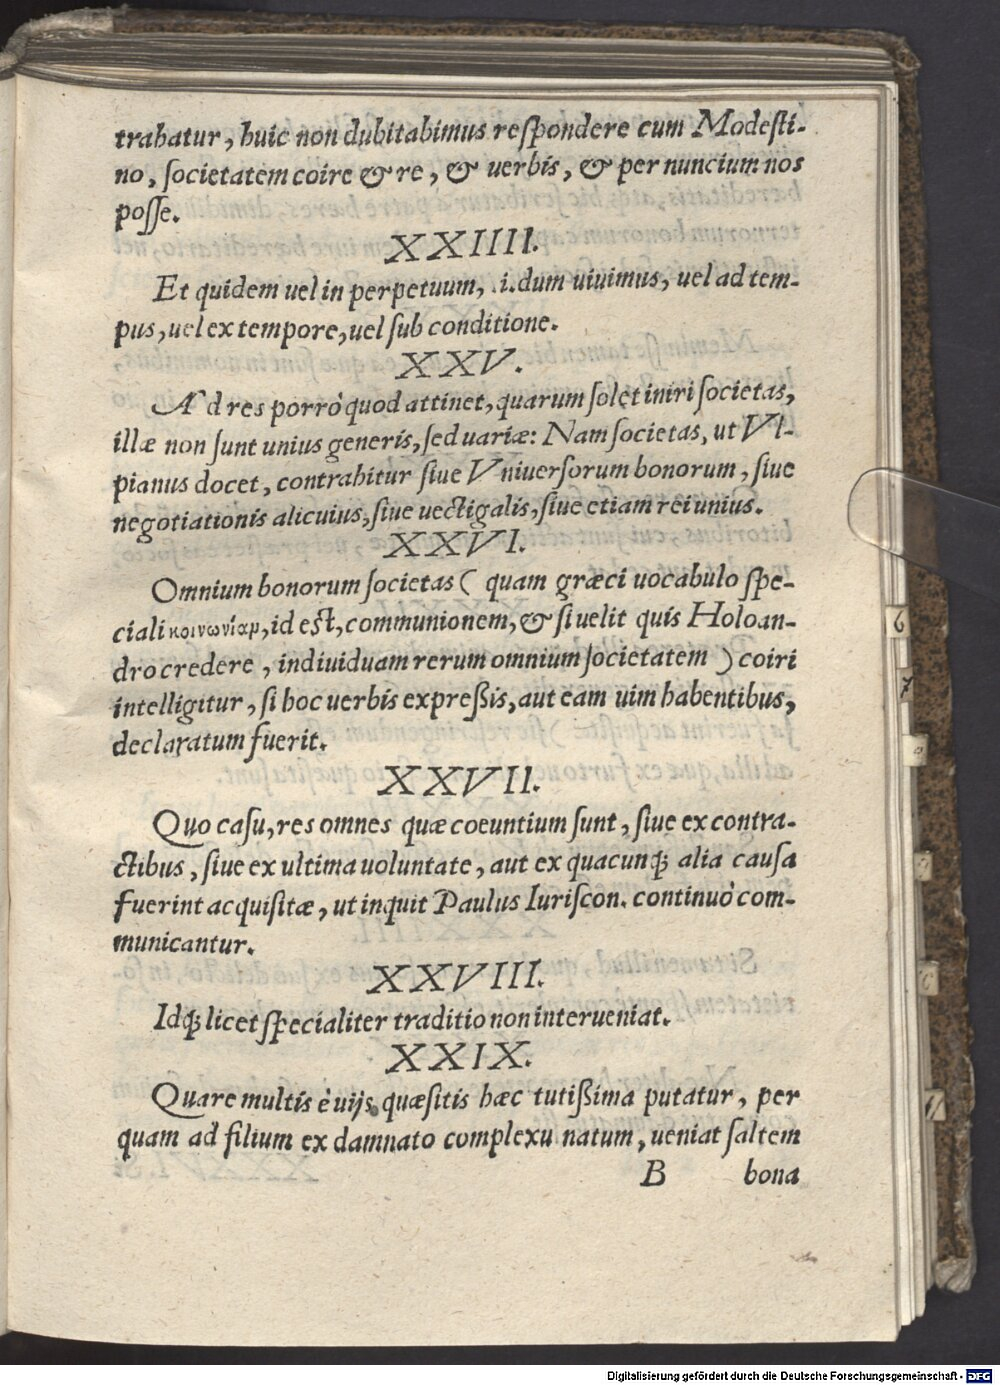 trahatur, huic non dubitabimus respondere cum Modesti-
no, societatem coire & re, & verbis, & per nuncium nos
posse.
XXIIII.
Et quidem uel in perpetuum, .i. dum uiuimus, uel ad tem-
pus, uel ex tempore, uel sub conditione.
XXV.
Ad res porrò quod attinet, quarum solet iniri societas,
illæ non sunt unius generis, sed uariæ: Nam societas, ut Vl-
pianus docet, contrahitur siue Vniuersorum bonorum, siue
negotiationis alicuius, siue uectigalis, siue etiam rei unius.
XXVI.
Omnium bonorum societas ( quam græci uocabulo spe-
ciali κοινωνίαμ, id est, communionem, & si uelit quis Holoan-
dro credere, indiuiduam rerum omnium societatem ) coiri
intelligitur, si hoc uerbis expreßis, aut eam uim habentibus,
declaratum fuerit.
XXVII.
Quo casu, res omnes quæ coeuntium sunt, siue ex contra-
ctibus, siue ex ultima uoluntate, aut ex quacunq; alia causa
fuerint acquisitæ, ut inquit Paulus Iuriscon. continuò com-
municantur.
XXVIII.
Idq; licet specialiter traditio non interueniat.
XXIX.
Quare multis è uijs quæsitis hæc tutißima putatur, per
quam ad filium ex damnato complexu natum, ueniat saltem
B bona
6
7
Digitalisierung gefördert durch die Deutsche Forschungsgemeinschaft - DFG